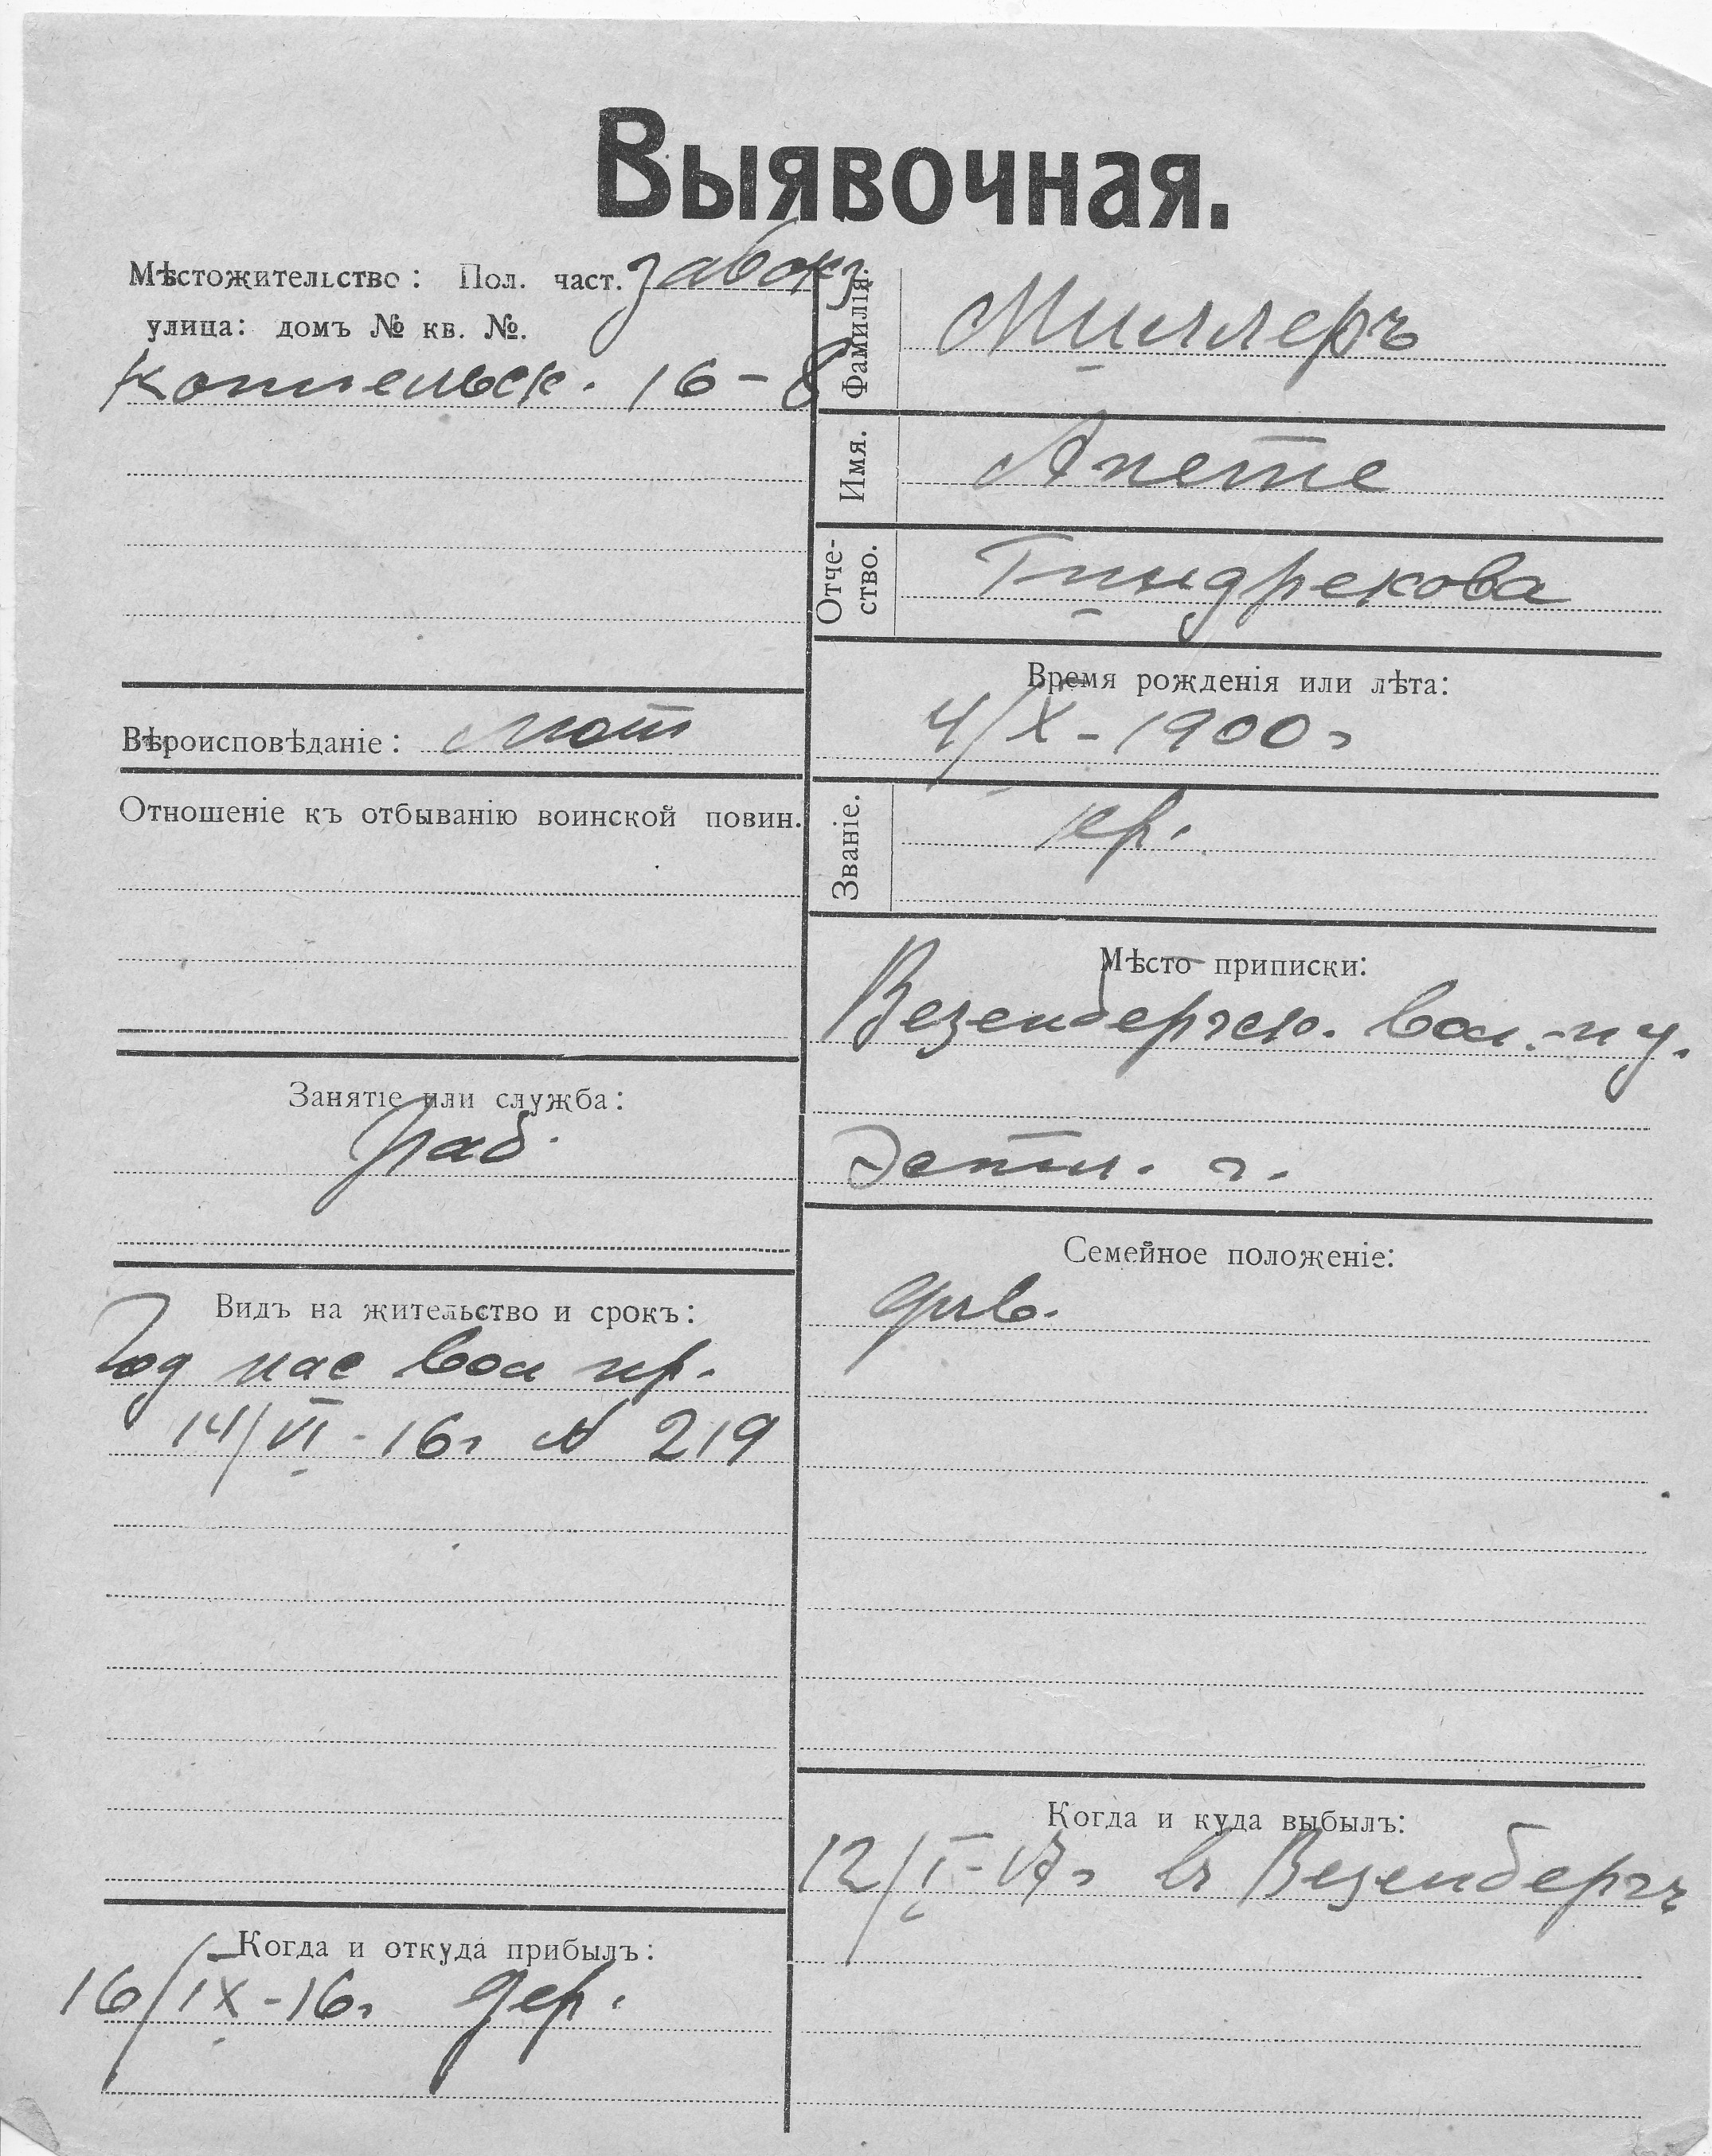 Выявочная.
Мѣстожительство: Пол. част. завокз
улица: домъ № кв. №.
Копельск. 16-8
Вѣроисповѣданіе: лют
Отношеніе къ отбыванію воинской повин.
Занятіе или служба:
раб.
Видъ на жительство и срокъ:
Год пас вол пр.
14/VI-16г N 219
Когда и откуда прибылъ:
16/IX-16г дер.
Фамилія. Миллеръ
Имя. Анете
Отче-
ство. Гиндрекова
Время рожденія или лѣта:
4/X-1900г
Званіе. кр.
Мѣсто приписки:
Везенбергск. вол.-и у.
Эстл. г.
Семейное положеніе:
дев.
Когда и куда выбылъ:
12/I-17г въ Везенбергъ